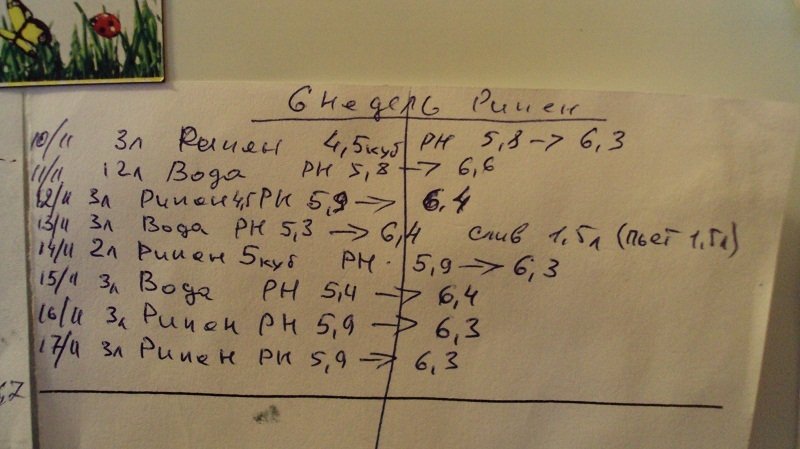 6 недель Рипен
10/11 3л Рипен 4,5куб PH 5,8 -> 6,3
11/11 12л Вода PH 5,8 -> 6,6
12/11 3л Рипен 4,5 PH 5,9 -> 6,4
13/11 3л Вода PH 5,3 -> 6,4 слив 1,5л (пьет 1,5л)
14/11 2л Рипен 5куб PH 5,9 -> 6,3
15/11 3л Вода PH 5,4 -> 6,4
16/11 3л Рипен PH 5,9 -> 6,3
17/11 3л Рипен PH 5,9 => 6,3